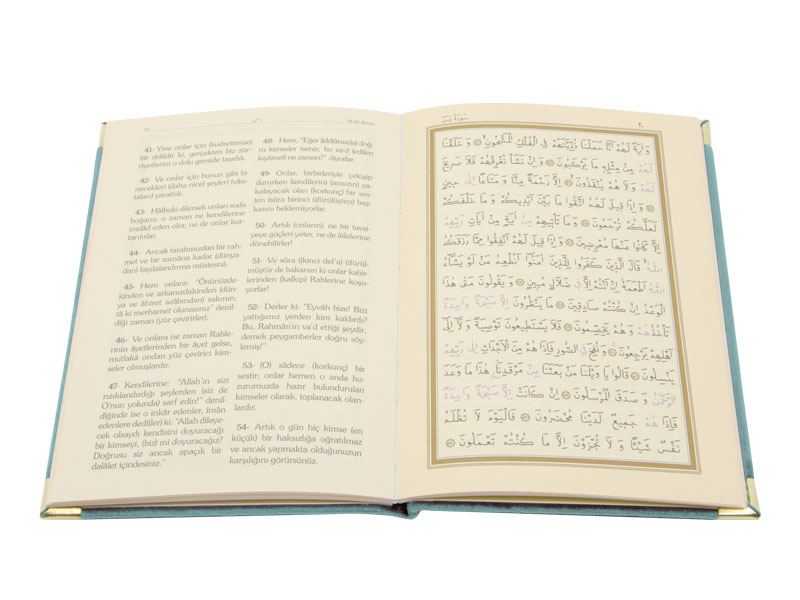 41- Yine onlar için (kudretimize)
bir delildir ki, gerçekten biz zür-
riyetlerini o dolu gemide taşıdık.
42- Ve onlar için bunun gibi bi-
necekleri (daha nice) şeyleri (ulaş-
tırılan) yarattık.
43- Hâlbuki dilersek onları suda
boğarız; o zaman ne kendilerine
imdâd eden olur, ne de onlar kur-
tarılırlar.
44- Ancak tarafımızdan bir rah-
met ve bir zamâna kadar (dünya-
dan) faydalandırma müstesnâ.
45- Hem onlara: "Önünüzde-
kinden ve arkanızdakinden (dün-
ya ve âhiret azâbından) sakının,
tâ ki merhamet olunasınız" denil-
diği zaman (yüz çevirirler).
46- Ve onlara ise zaman Rable-
rinin âyetlerinden bir âyet gelse,
mutlaka ondan yüz çevirici kim-
seler olmuşlardır.
47- Kendilerine: "Allah'ın sizi
rızıklandırdığı şeylerden (siz de
O'nun yolunda) sarf edin!" denil-
diğinde ise o inkâr edenler, îmân
edenlere dediler ki: "Allah dileye-
cek olsaydı kendisini doyuracağı
bir kimseyi, (biz) mi doyuracağız?
Doğrusu siz ancak apaçık bir
dalâlet içindesiniz."
48- Hem, "Eğer (iddiânızda) doğ-
ru kimseler iseniz, bu va'd (edilen
kıyâmet) ne zaman?" diyorlar.
49- Onlar, birbirleriyle çekişip
dururken kendilerini (ansızın) ya-
kalayacak olan (korkunç) bir ses-
ten (sûra birinci üfürülüşten) baş-
kasını beklemiyorlar.
50- Artık (onların), ne bir tavsi-
yeye güçleri yeter, ne de âilelerine
dönebilirler!
51- Ve sûra (ikinci def'a) üfürül-
müştür de bakarsın ki onlar kabir-
lerinden (kalkıp) Rablerine koşu-
yorlar!
52- Derler ki: "Eyvâh bize! Bizi
yattığımız yerden kim kaldırdı?
Bu, Rahmân'ın va'd ettiği şeydir,
demek peygamberler doğru söy-
lemiş!"
53- (O) sâdece (korkunç) bir
sestir; onlar hemen o anda hu-
zurumuzda hazır bulundurulan
kimseler olarak, toplanacak olan-
lardır.
54- Artık o gün hiç kimse (en
küçük) bir haksızlığa uğratılmaz
ve ancak yapmakta olduğunuzun
karşılığını görürsünüz.
وَ اٰيَةٌ لَهُمْ اَنَّا حَمَلْنَا ذُرِّيَّتَهُمْ فِى الْفُلْكِ الْمَشْحُونِ وَ خَلَقْنَا
لَهُمْ مِنْ مِثْلِهِ مَا يَرْكَبُونَ وَ اِنْ نَشَأْ نُغْرِقْهُمْ فَلَا صَرِيخَ
لَهُمْ وَ لَا هُمْ يُنْقَذُونَ اِلَّا رَحْمَةً مِنَّا وَ مَتَاعًا اِلٰى حِينٍ
وَ اِذَا قِيلَ لَهُمُ اتَّقُوا مَا بَيْنَ اَيْدِيكُمْ وَ مَا خَلْفَكُمْ
لَعَلَّكُمْ تُرْحَمُونَ وَ مَا تَأْتِيهِمْ مِنْ اٰيَةٍ مِنْ اٰيَاتِ رَبِّهِمْ
اِلَّا كَانُوا عَنْهَا مُعْرِضِينَ وَ اِذَا قِيلَ لَهُمْ اَنْفِقُوا مِمَّا رَزَقَكُمُ
اللّٰهُ قَالَ الَّذِينَ كَفَرُوا لِلَّذِينَ اٰمَنُوا اَنُطْعِمُ مَنْ لَوْ يَشَاءُ
اللّٰهُ اَطْعَمَهُ اِنْ اَنْتُمْ اِلَّا فِى ضَلَالٍ مُبِينٍ وَ يَقُولُونَ مَتٰى هٰذَا
الْوَعْدُ اِنْ كُنْتُمْ صَادِقِينَ مَا يَنْظُرُونَ اِلَّا صَيْحَةً وَاحِدَةً
تَأْخُذُهُمْ وَ هُمْ يَخِصِّمُونَ فَلَا يَسْتَطِيعُونَ تَوْصِيَةً وَ لَا اِلٰى
اَهْلِهِمْ يَرْجِعُونَ وَ نُفِخَ فِى الصُّورِ فَاِذَا هُمْ مِنَ الْاَجْدَاثِ اِلٰى رَبِّهِمْ
يَنْسِلُونَ قَالُوا يَا وَيْلَنَا مَنْ بَعَثَنَا مِنْ مَرْقَدِنَا هٰذَا مَا وَعَدَ
الرَّحْمٰنُ وَ صَدَقَ الْمُرْسَلُونَ اِنْ كَانَتْ اِلَّا صَيْحَةً وَاحِدَةً
فَاِذَا هُمْ جَمِيعٌ لَدَيْنَا مُحْضَرُونَ فَالْيَوْمَ لَا تُظْلَمُ
نَفْسٌ شَيْئًا وَ لَا تُجْزَوْنَ اِلَّا مَا كُنْتُمْ تَعْمَلُونَ